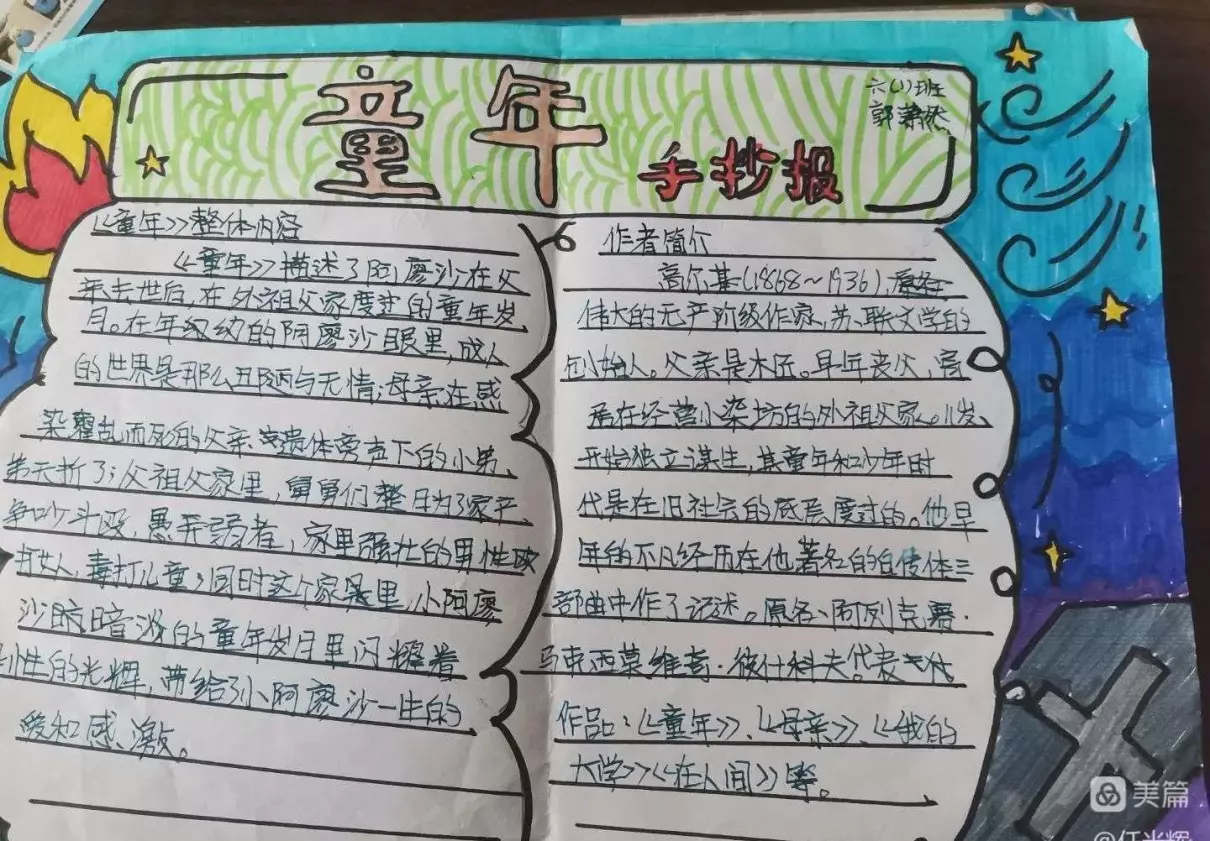 童年
手抄报
六(1)班
郭潇然
《童年》整体内容
《童年》描述了阿廖沙在父
亲去世后,在外祖父家度过的童年岁
月。在年级纹的阿廖沙眼里,成人
的世界是那么丑陋与无情;母亲在感
染霍乱而死的父亲遗体旁产下的小男、
弟夭折了;父祖父家里,舅舅们整日为了家产、
争吵斗殴,愚弄弱者,家里强壮的男性殴
打女人、毒打儿童;同时这个家里,小阿廖
沙暗淡的童年岁月里闪耀着
性的光辉,带给了小阿廖沙一生的
爱和感激。
作者简介
高尔基(1868~1936),原籍
伟大的无产阶级作家,苏、联文学的
创始人。父亲是木匠。早年丧父,寄
居在经营小染坊的外祖父家。11岁、
开始独立谋生,其童年和少年时
代是在旧社会的底层度过的。他早
年的不凡经历在他著名的自传体三
部曲中作了记述。原名、阿列克赛·
马克西莫维奇·彼什科夫。代表
作品:《童年》、《母亲》、《我的
大学》《在人间》等。
美篇
@任光辉